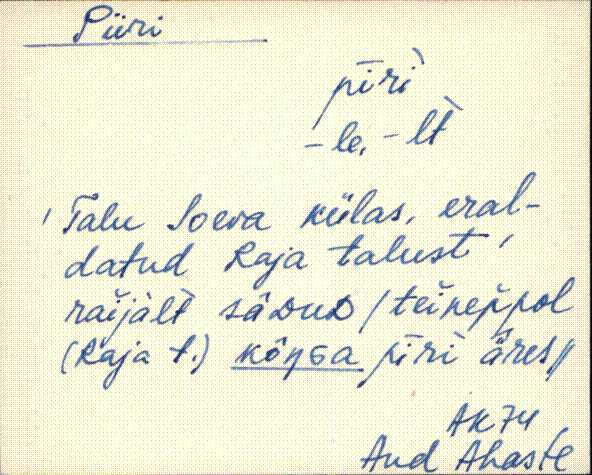 Piiri
pīrì
– le, – lt̀
' Talu Soeva külas, eral-
datud Raja talust '
raijàlt sâDUD / teineppol
(Raja t.) kôŋGa pīrì âres //
AK 74
And Ahaste